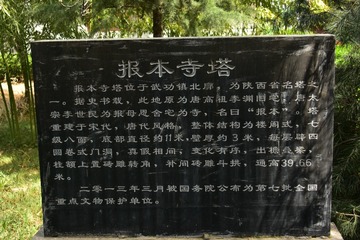 报本寺塔
报本寺塔位于武功镇北廓，为陕西省名塔之
一。据史书载，此地原为唐高祖李渊别宅，唐太
宗李世民为报母恩舍宅为寺，名曰"报本"。塔
重建于宋代，唐代风格。整体结构为楼阁式，七
级八面，底部直径约11米，壁厚约3米，每层辟四
圆拱式门洞，真假相间，变化有序，出檐叠涩，
柱额上置砖雕转角、补间砖雕斗拱，通高39.66
米。
二零一三年三月被国务院公布为第七批全国
重点文物保护单位。